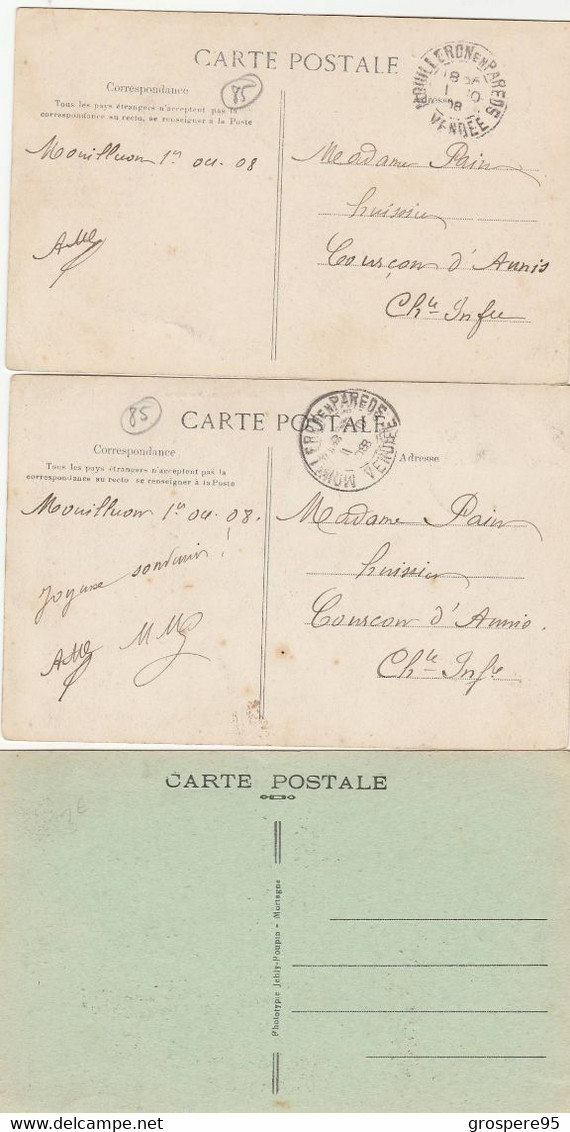 CARTE POSTALE
MOUILLERON EN PAREDS
VENDÉE
Correspondance
85
Adresse
Tous les pays étrangers n'acceptent pas la
correspondance au recto, se renseigner à la Poste
Mouilleron 1er oct. 08
Madame Pain
huissier
Courçon d'Aunis
Chte Infre
CARTE POSTALE
85
MOUILLERON EN PAREDS
VENDÉE
Correspondance
Adresse
Tous les pays étrangers n'acceptent pas la
correspondance au recto se renseigner à la Poste
Mouilleron 1er oct. 08.
Joyeux souvenir !
Madame Pain
huissier
Courçon d'Aunis.
Chte Infre
CARTE POSTALE
Phototypie Jehly-Poupin - Mortagne
grospere95
www.delcampe.net